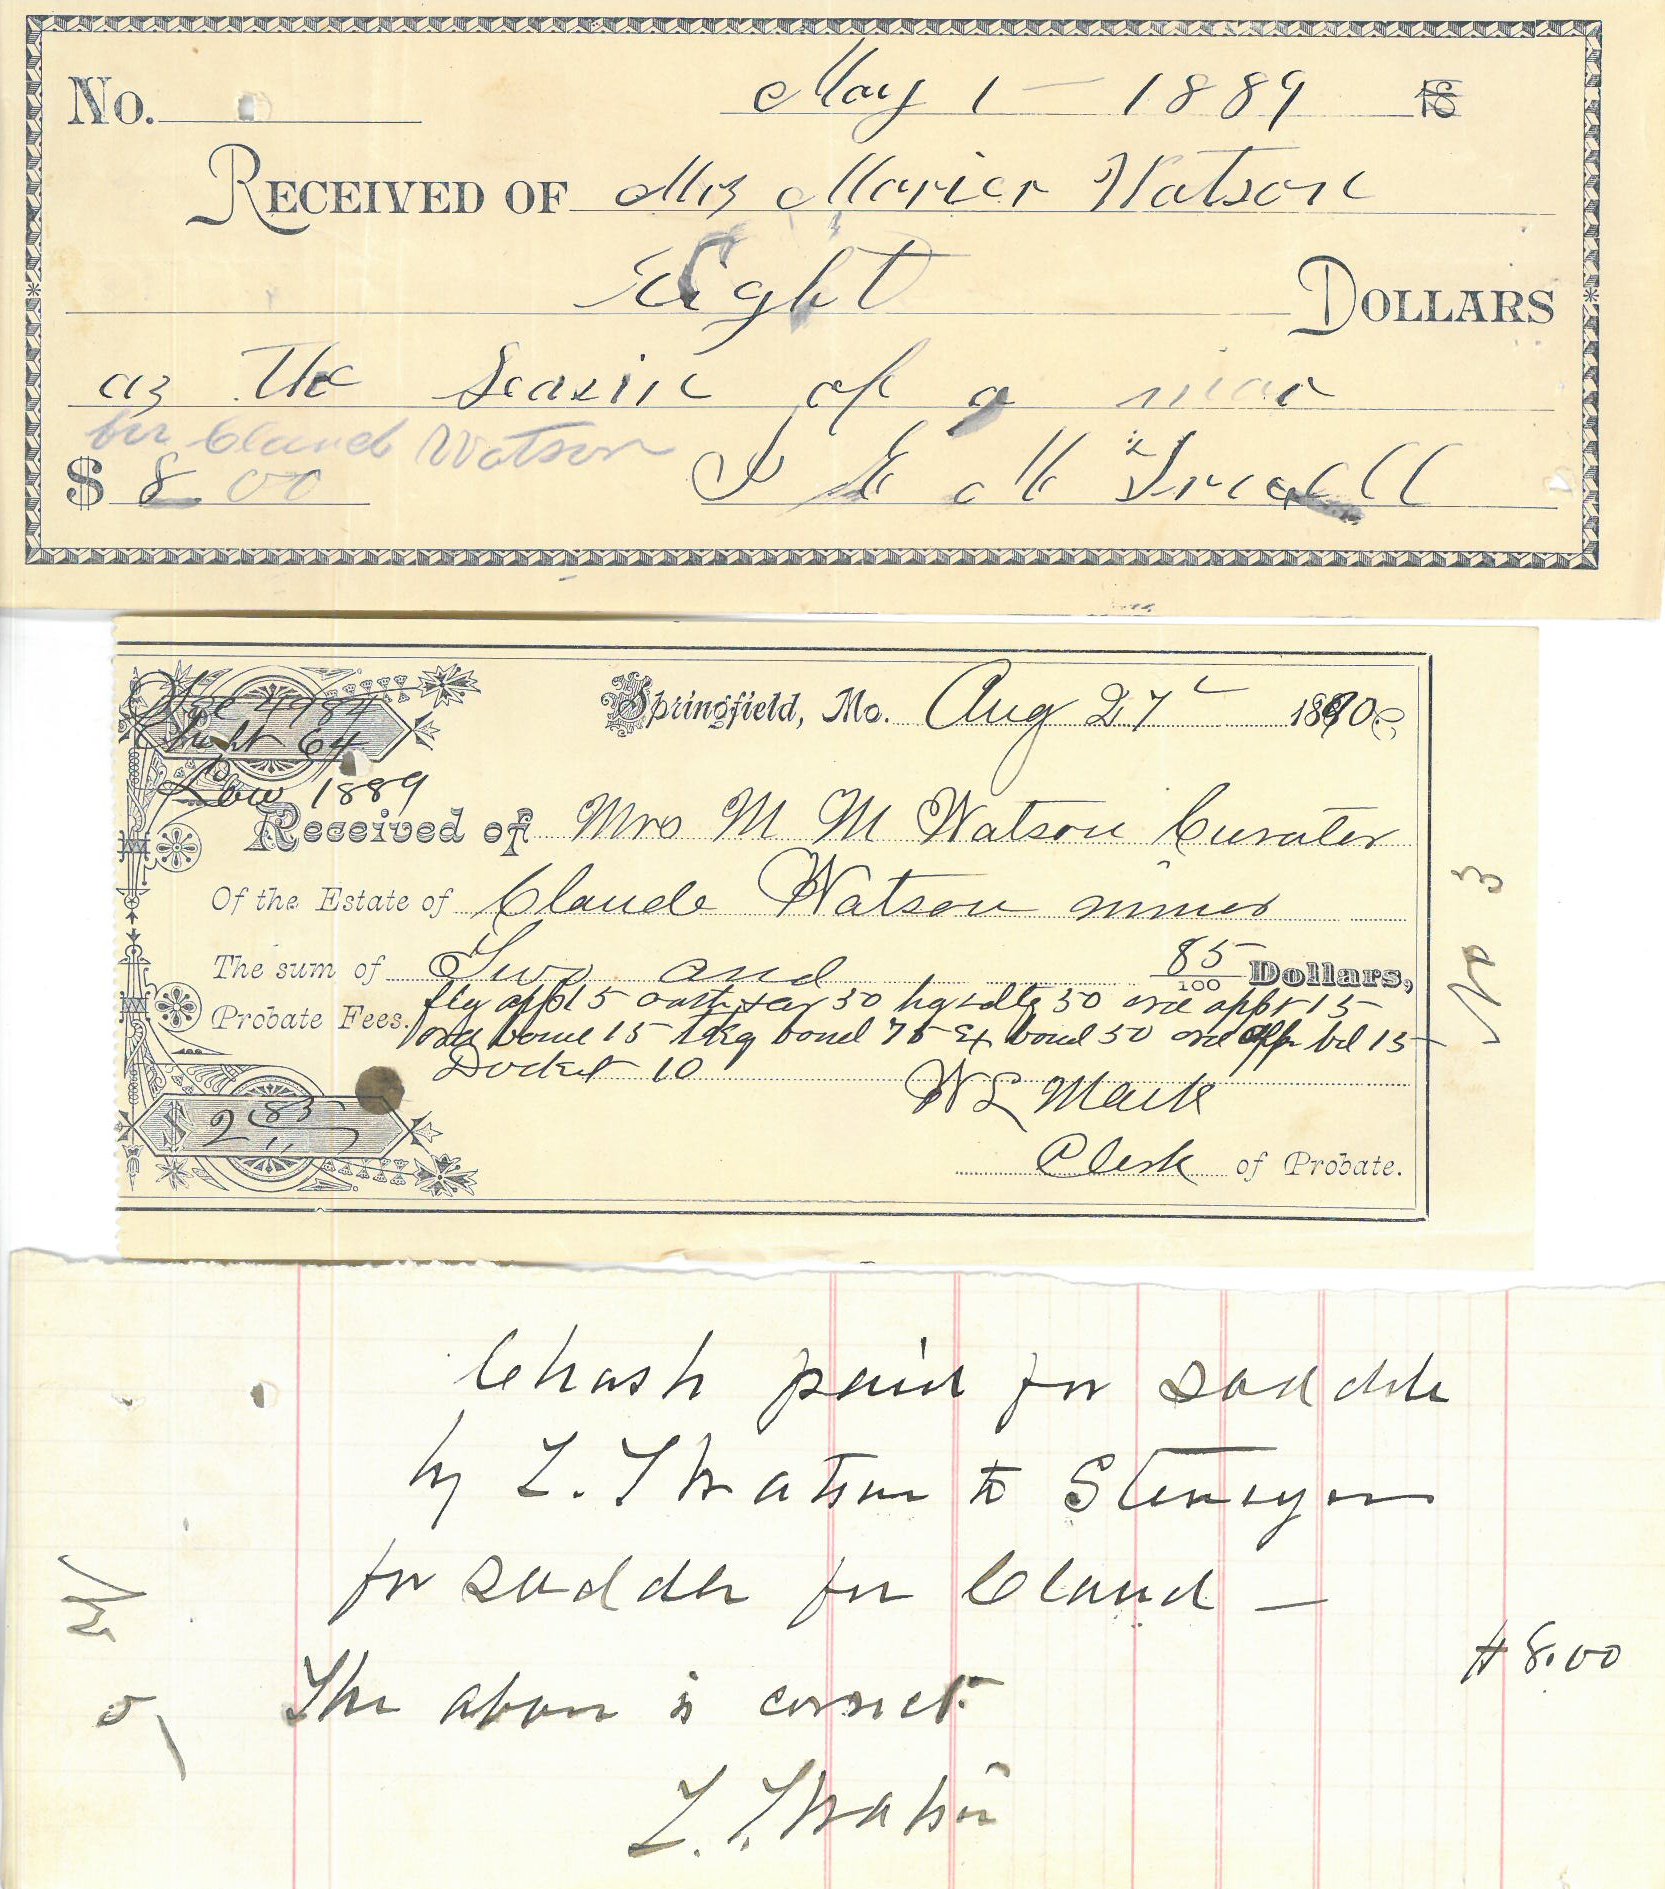 No. May 1 – 1889 18
RECEIVED OF Mrs Marier Watson
Eight DOLLARS
as the Seasin of a mar
for Claud Watson
$ 8 00
Springfield, Mo. Aug 27 1890
64
Law 1889
Received of Mrs M M Watson Curater
Of the Estate of Claude Watson minor
The sum of Two and 85/100 Dollars,
Probate Fees. flg appl 5 oath 30 50 ord appt 15
bond 15 bond 75 bond 50 ord app bd 15
Docket 10
W L Mack
$ 2 85
Clerk of Probate.
No 3
Chash paid for saddle
by L. T Watson to
for saddle for Claud –
$8.00
The above is correct
L. T. Watson
No 5